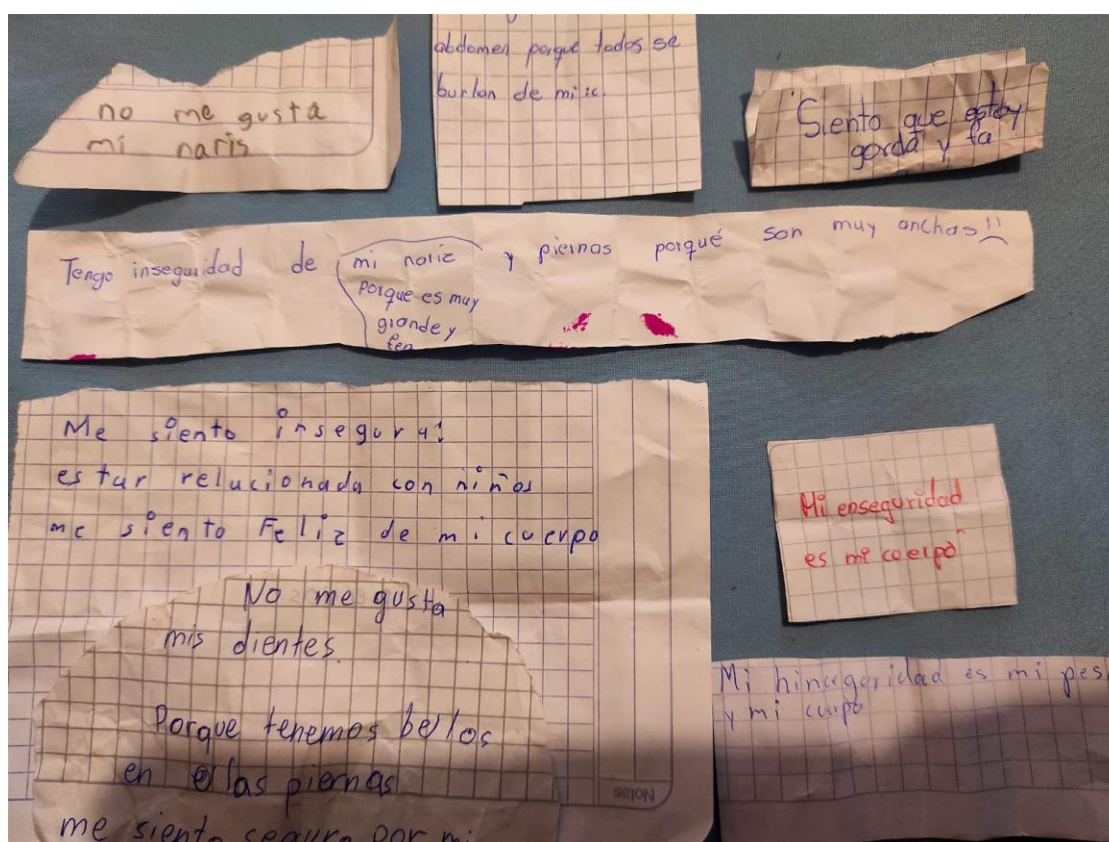 no me gusta
mi naris
abdomen porque todos se
burlan de mi :c
Siento que estoy
gorda y fa
Tengo inseguidad de mi nariz y piernas porqué son muy anchas!!
porque es muy
grande y
fea
Me siento insegura:
estar relacionada con niños
me siento Feliz de mi cuerpo
No me gusta
mis dientes.
Porque tenemos bellos
en las piernas
me siento segura por mi
Mi enseguridad
es mi coerpo
Mi hinceguridad es mi pes
y mi curpo
Notas